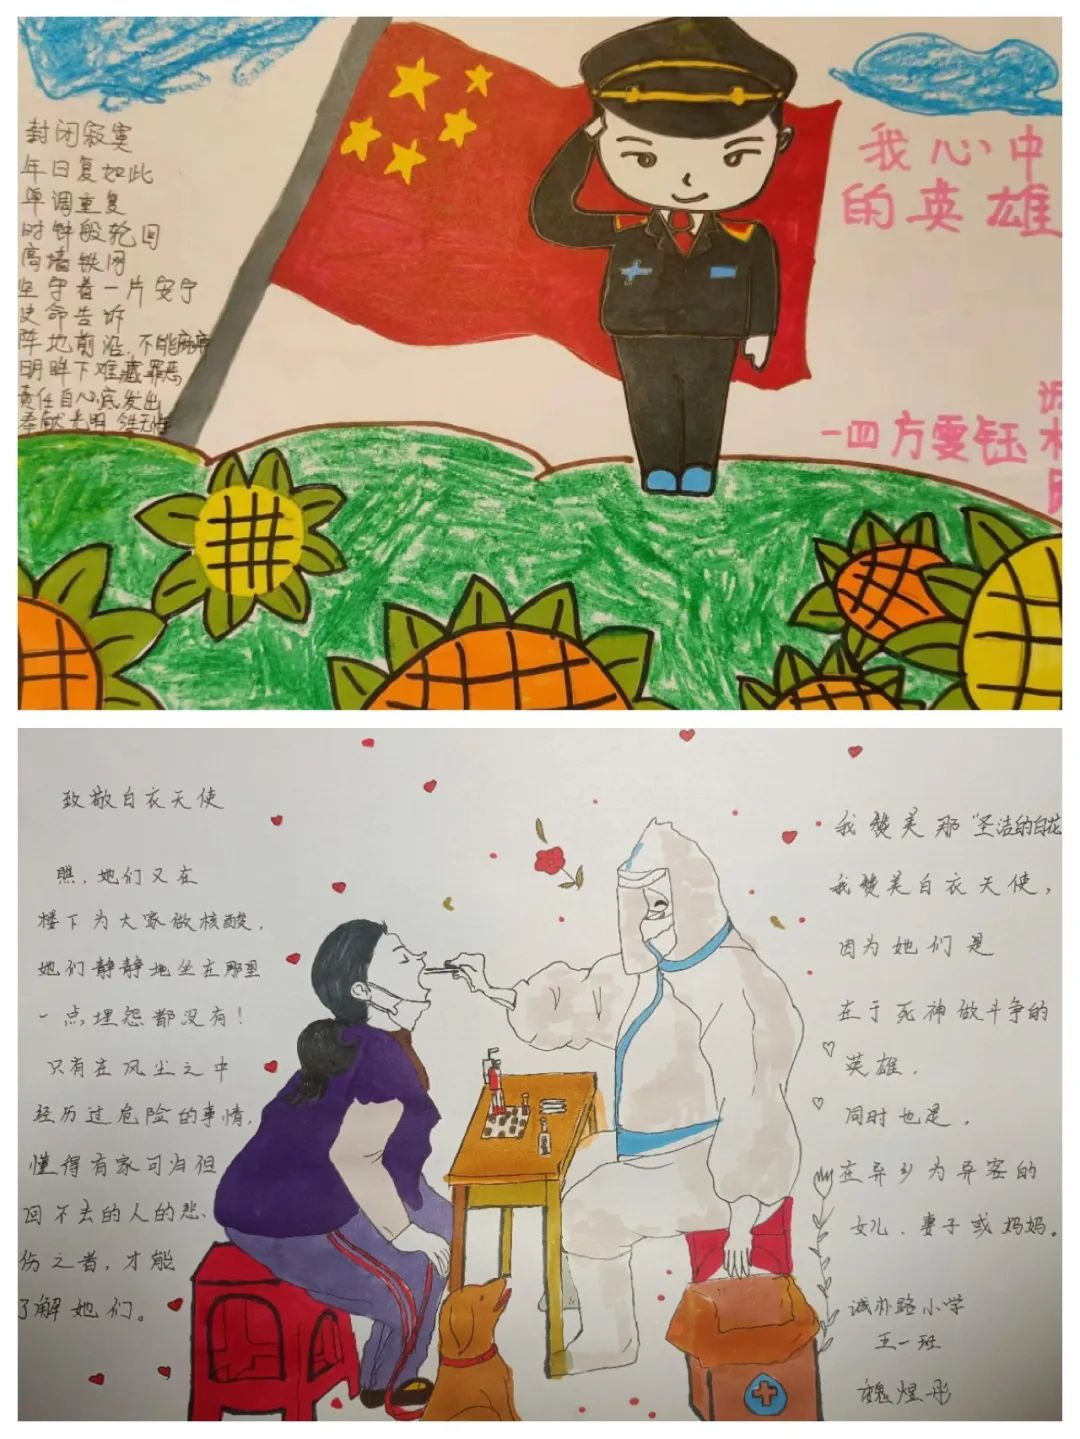 封闭寂寞
年日复如此
单调重复
时钟般轮回
高墙铁网
坚守着一片安宁
史命告诉
阵地前沿,不能麻痹
明眸下难藏罪恶
责任自心底发出
奉献光明
我心中
的英雄
一四方雯钰
致敬白衣天使
瞧,她们又在
楼下为大家做核酸,
她们静静地坐在那里
一点埋怨都没有!
只有在风尘之中
经历过危险的事情,
懂得有家可归但
回不去的人的悲、
伤之者,才能
了解她们。
我赞美那“圣洁的白花
我赞美白衣天使,
因为她们是
在于死神做斗争的
英雄.
同时也是,
在异乡为异客的
女儿、妻子或妈妈。
诚朴路小学
五一班
魏煜彤